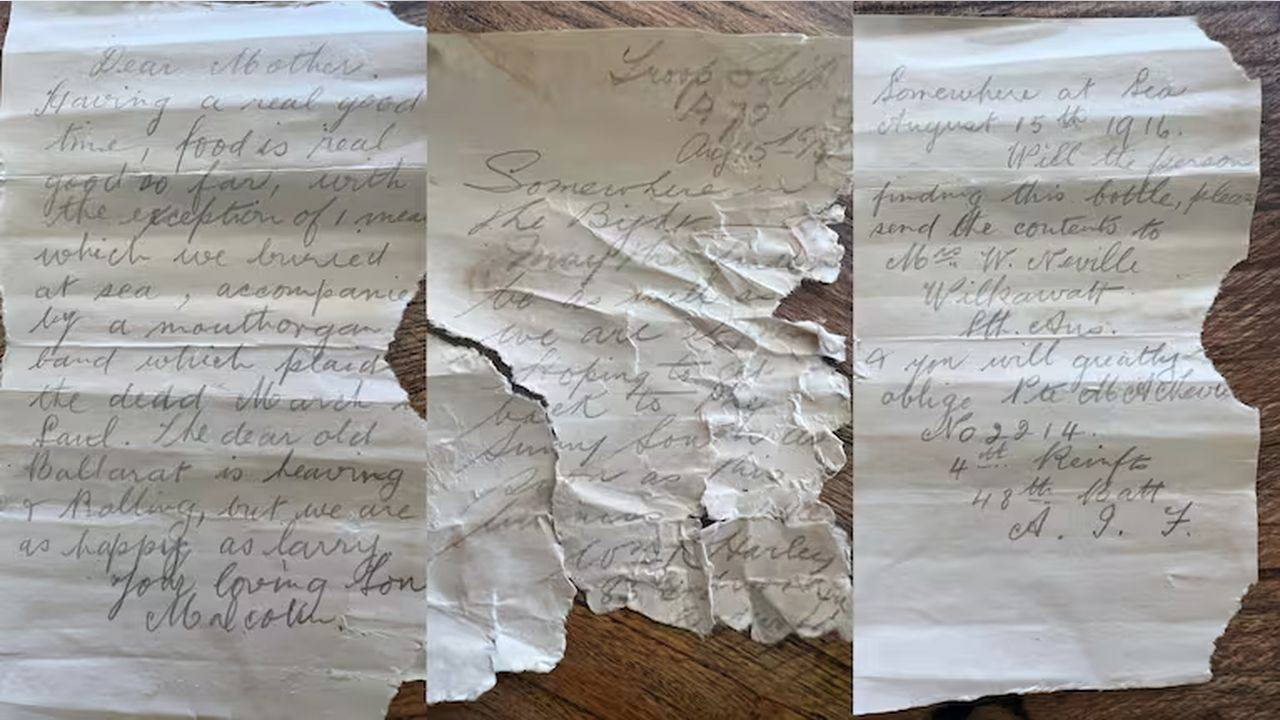 Dear Mother.
Having a real good
time, food is real
good so far, with
the exception of 1 mea
which we buried
at sea, accompanie
by a mouthorgan
band which plaid
the dedd March
Saul. The dear old
Ballarat is heaving
& Rolling, but we are
as happy as larry.
Your loving Son
Malcolm.
Troop Ship
A 70
Aug 15
Somewhere in
the Bight
May the
be as
we are
hoping to
back to the
Sunny
as this
Harley
Somewhere at Sea
August 15th 1916.
Will the person
finding this bottle, pleas
send the contents to
Mrs W. Neville
Wilkawatt
Sth. Aus.
& you will greatly
oblige Pte M A
No 2214.
4th Reinfts
48th Batt
A. I. F.